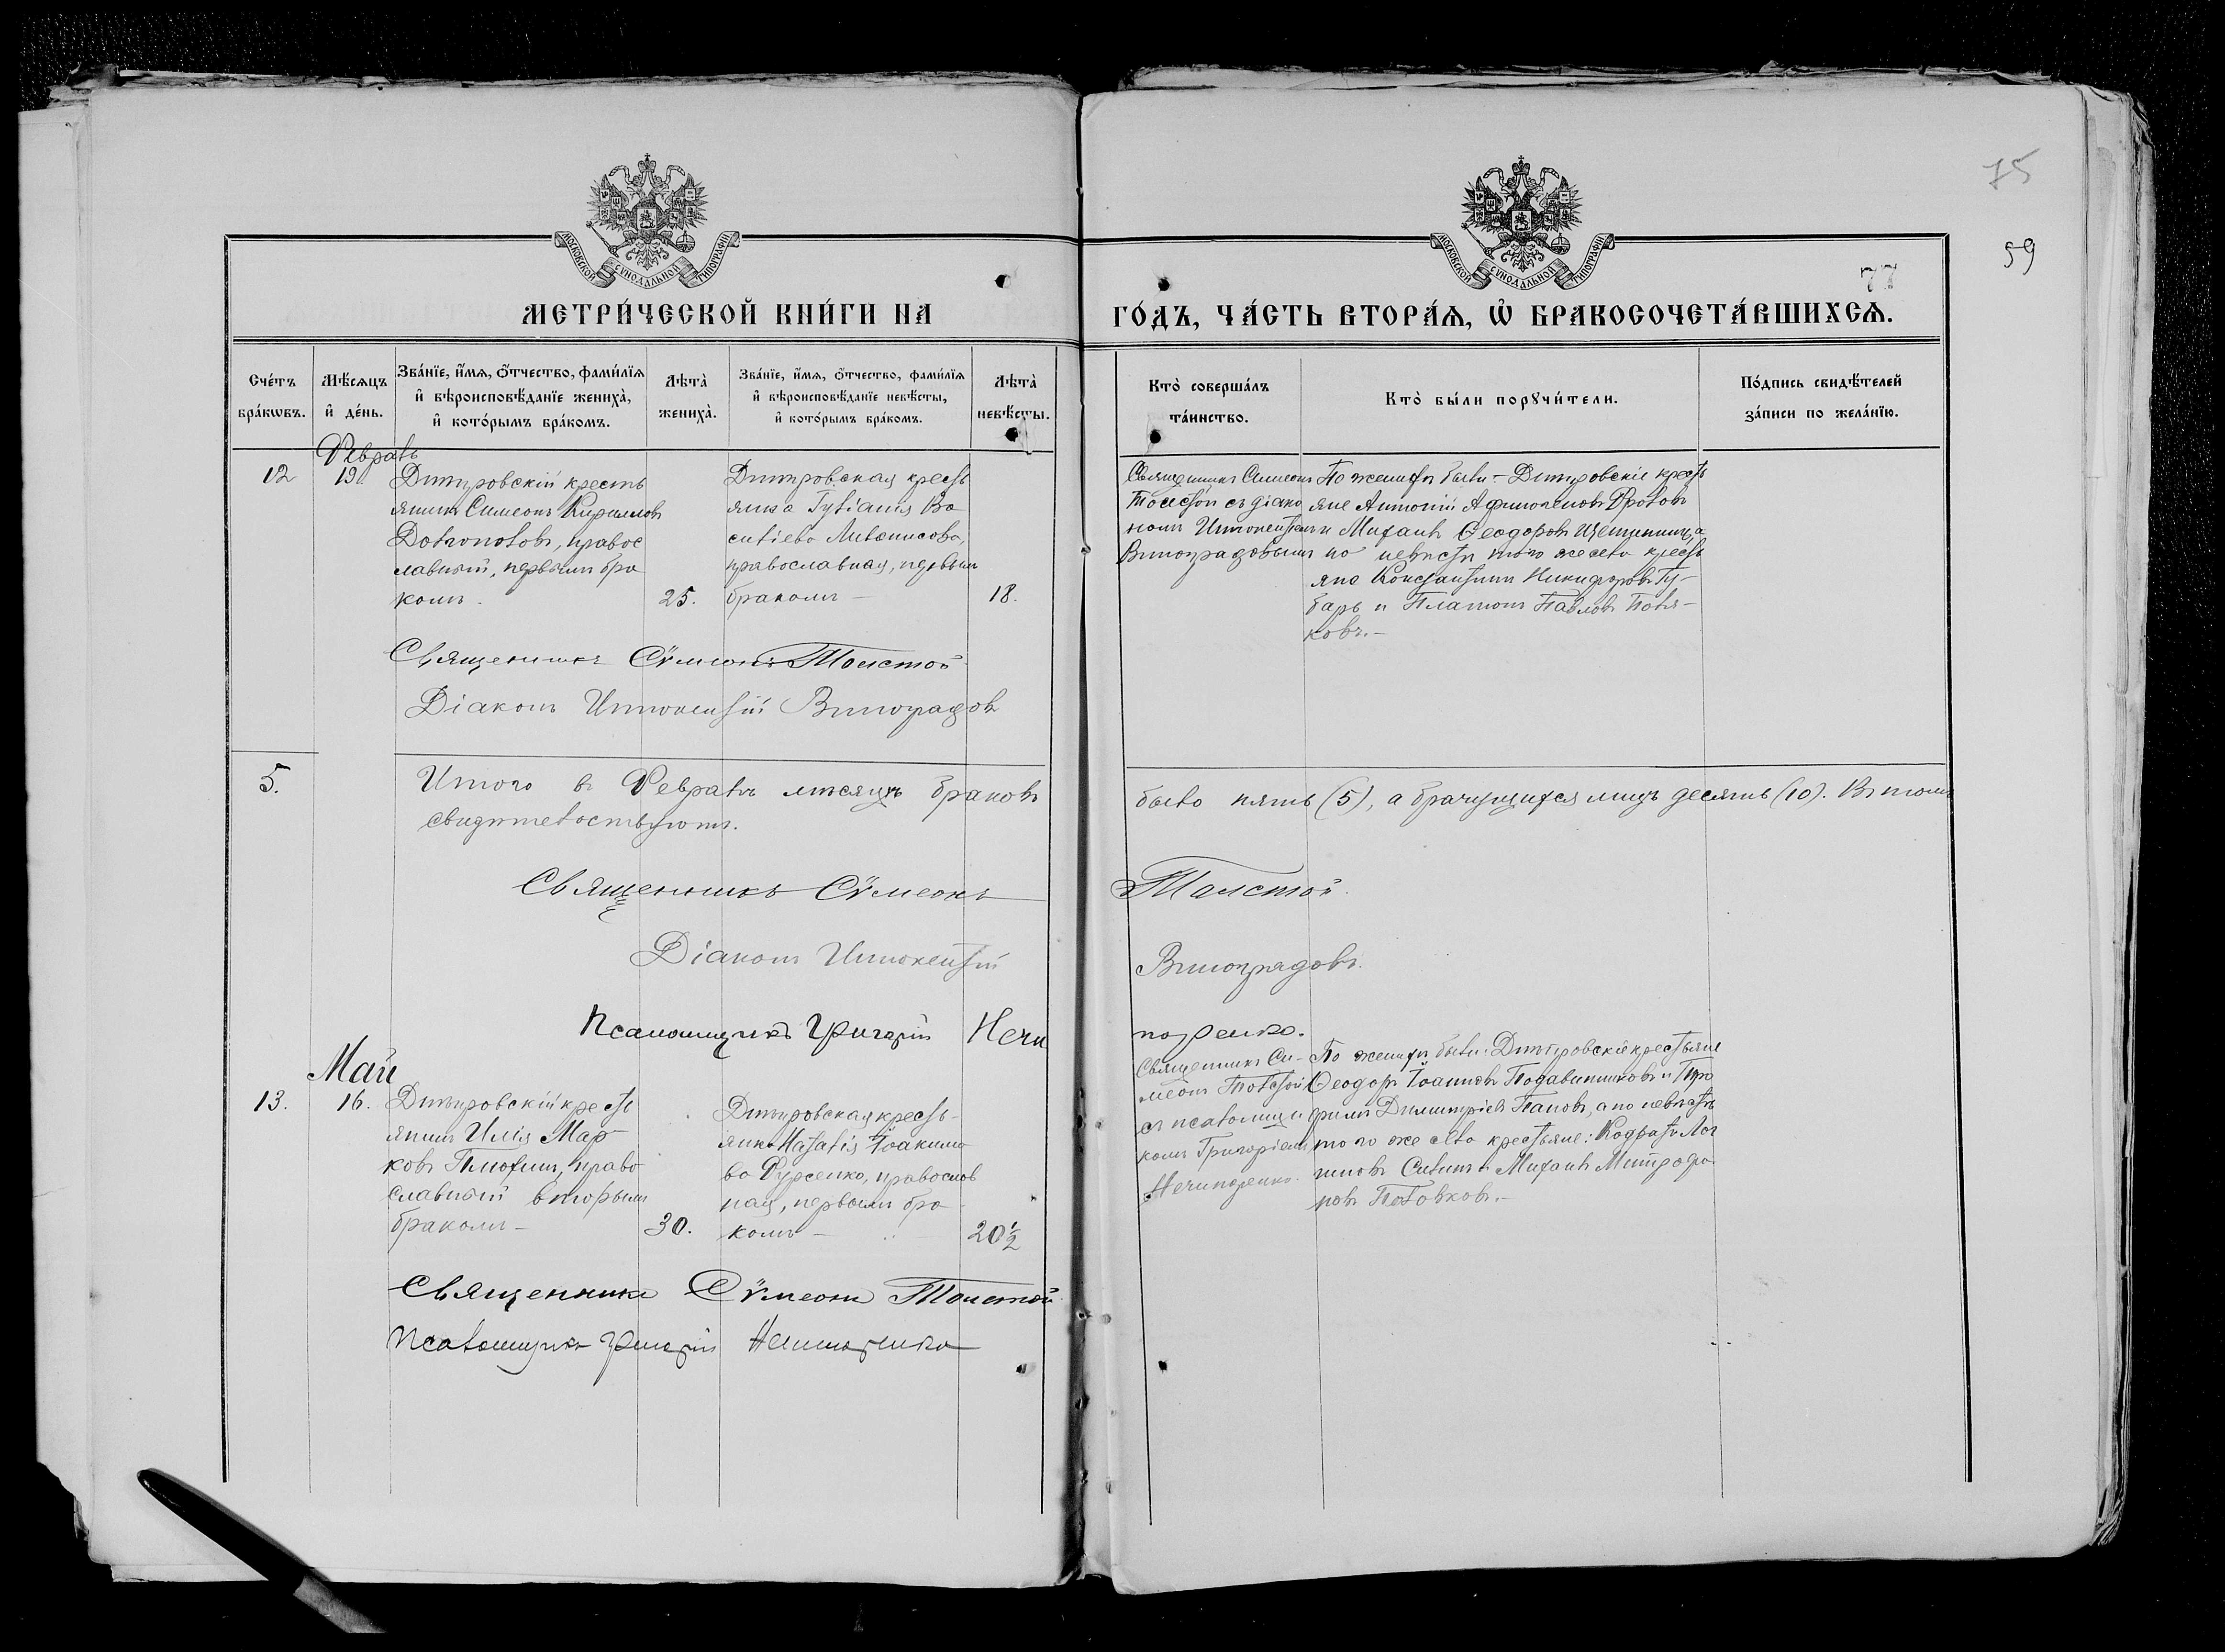 75
59
77
МОСКОВСКОЙ СѴНОДАЛЬНОЙ ТИПОГРАФІИ
МОСКОВСКОЙ СѴНОДАЛЬНОЙ ТИПОГРАФІИ
МЕТРИ́ЧЕСКОЙ КНИ́ГИ НА
ГО́ДЪ, ЧА́СТЬ ВТОРА́Ѧ, Ѡ҆ БРАКОСОЧЕТА́ВШИХСѦ.
Сче́тъ
бра́кѡвъ.
Мѣ́сяцъ
и҆ де́нь.
Зва́нїе, и҆́мѧ, ѻ҆́тчество, фами́лїѧ
и҆ вѣроисповѣ́данїе жениха̀,
и҆ кото́рымъ бра́комъ.
Лѣта̀
жениха̀.
Зва́нїе, и҆́мѧ, ѻ҆́тчество, фами́лїѧ
и҆ вѣроисповѣ́данїе невѣ́сты,
и҆ кото́рымъ бра́комъ.
Лѣта̀
невѣ́сты.
Кто̀ соверша́лъ
та́инство.
Кто̀ бы́ли порꙋчи́тели.
По́дпись свидѣ́телей
за́писи по жела́нїю.
Февраль
12
19
Дмитровскій кресть
янинъ Симеонъ Кирилловъ
правос
лавный, первымъ бра
комъ.
25.
Дмитровская кресть
янка Ва
сильева
православная, первымъ
бракомъ —
18.
Священникъ Симеонъ
Толстой съ діако
номъ Иннокентіемъ
Виноградовымъ
По женихѣ были — Дмитровскіе кресть
яне Антоній Фроловъ
и Михаилъ Ѳеодоровъ а
по невѣстѣ того же села кресть
яне Константинъ Никифоровъ Гу-
барь и Платонъ Павловъ Поля-
ковъ. —
Священникъ Сѵмеонъ Толстой
Діаконъ Иннокентій Виноградовъ
5.
Итого въ Февралѣ мѣсяцѣ браковъ было пять (5), а брачущихся лицъ десять (10). Въ томъ
свидѣтельствуютъ.
Священникъ Сѵмеонъ Толстой.
Діаконъ Иннокентій Виноградовъ.
Псаломщикъ Григорій Нечипоренко.
Май
13.
16.
Дмитровскій кресть
янинъ Илія Мар
ковъ право
славный вторымъ
бракомъ —
30.
Дмитровская кресть-
янка Наталія Іоакимо
ва Фурсенко, православ
ная, первымъ бра
комъ —
20½
Священникъ Си-
меонъ Толстой
съ псаломщи
комъ Григоріемъ
Нечипоренко.
По женихѣ были: Дмитровскіе крестьяне
Ѳеодоръ Іоанновъ и Тро
фимъ Димитріевъ Пановъ, а по невѣстѣ
того же села крестьяне: Кодратъ Лог
гиновъ и Михаилъ Митрофа
новъ
Священникъ Сѵмеонъ Толстой
Псаломщикъ Григорій Нечипоренко